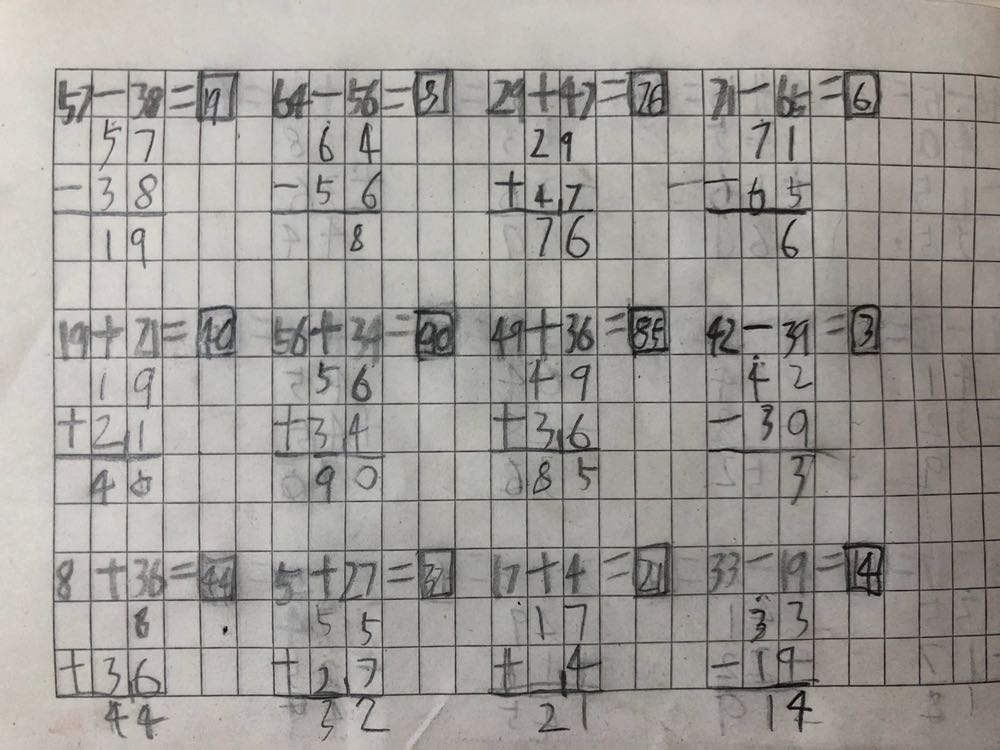 57-38=19 64-56=8 29+47=76 71-65=6
57 64 29 71
-38 -56 +47 -65
19 8 76 6
19+21=40 56+34=90 49+36=85 42-39=3
19 56 49 42
+21 +34 +36 -39
40 90 85 3
8+36=44 5+27=32 17+4=21 33-19=14
8 5 17 33
+36 +27 +4 -19
44 32 21 14